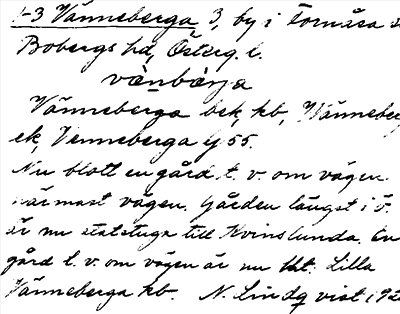 1-3 Vänneberga, 3, by i Tornåsa
Bobergs hd, Österg. l.
væ̀nbærja
Vänneberga bek, kb, Wänneberg
ek, Venneberga G 55.
Nu blott en gård t. v. om vägen
närmast vägen. Gården längst i ö.
är nu statstuga till Kvinslunda. En
gård t. v. om vägen är nu Lilla
Vänneberga kb. N. Lindq vist 192